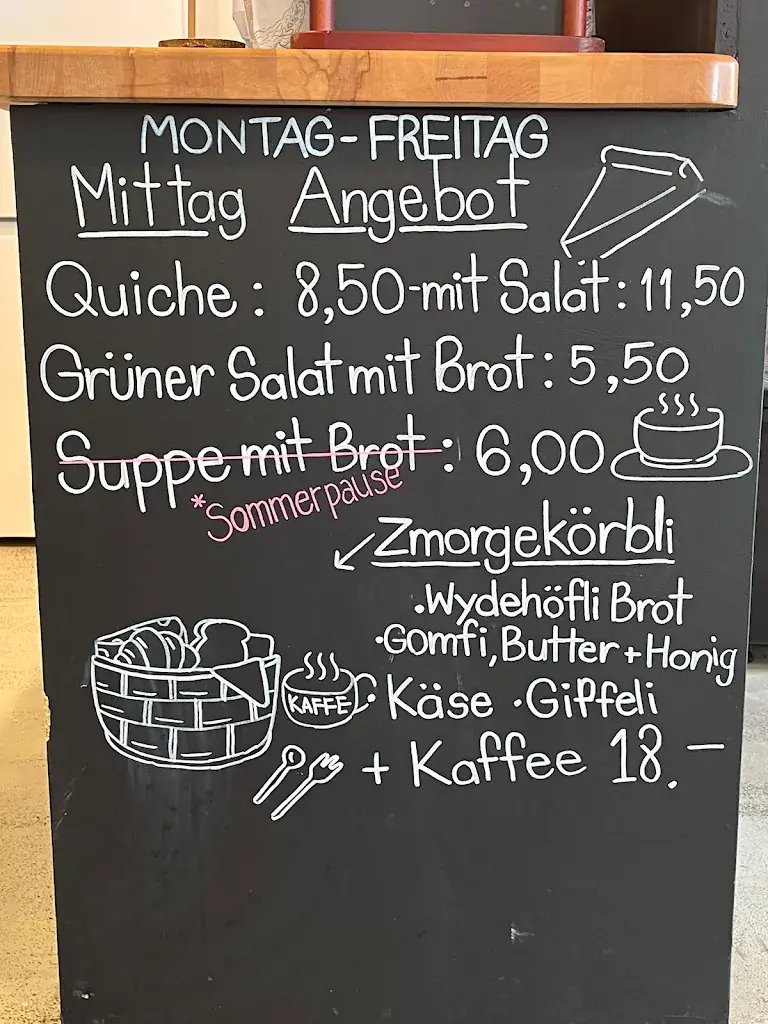 MONTAG-FREITAG
Mittag Angebot
Quiche: 8,50-mit Salat: 11,50
Grüner Salat mit Brot: 5,50
Suppe mit Brot: 6,00
*Sommerpause
Zmorgekörbli
•Wydehöfli Brot
•Gomfi, Butter + Honig
KAFFE
•Käse •Gipfeli
+ Kaffee 18.–